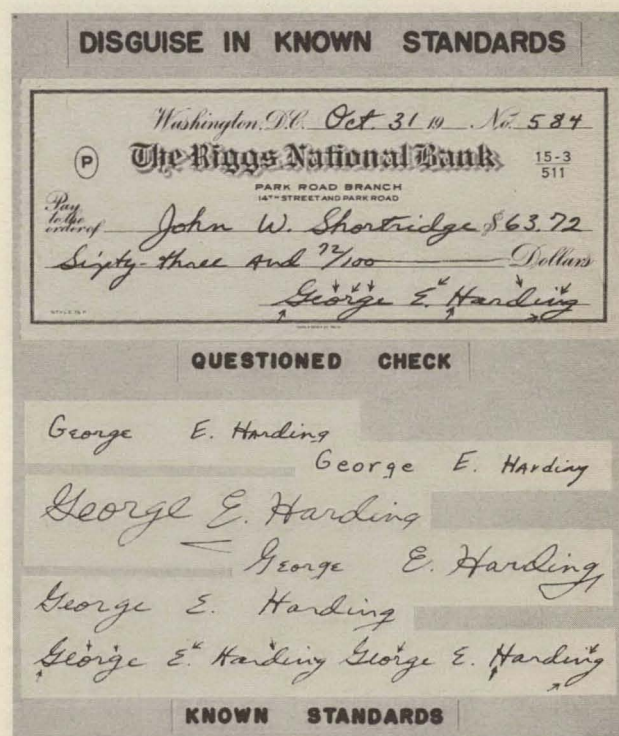 DISGUISE IN KNOWN STANDARDS
Washington, D.C. Oct. 31 19 No. 584
P The Riggs National Bank 15-3
511
PARK ROAD BRANCH
14TH STREET AND PARK ROAD
Pay
to the
order of John W. Shortridge $63.72
Sixty-three and 72/100 Dollars
George E. Harding
QUESTIONED CHECK
George E. Harding
George E. Harding
George E. Harding
George E. Harding
George E. Harding
George E. Harding George E. Harding
KNOWN STANDARDS